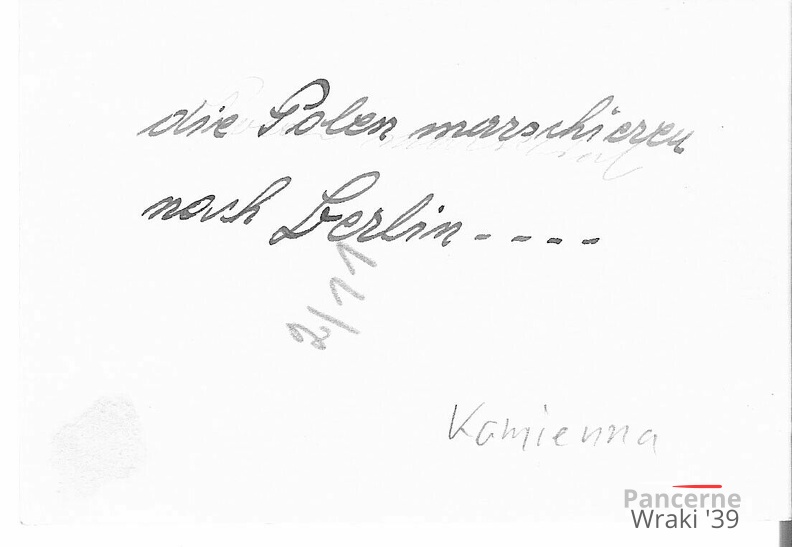 die Polen marschieren
nach Berlin - - - -
2/11
Kamienna
Pancerne
Wraki '39